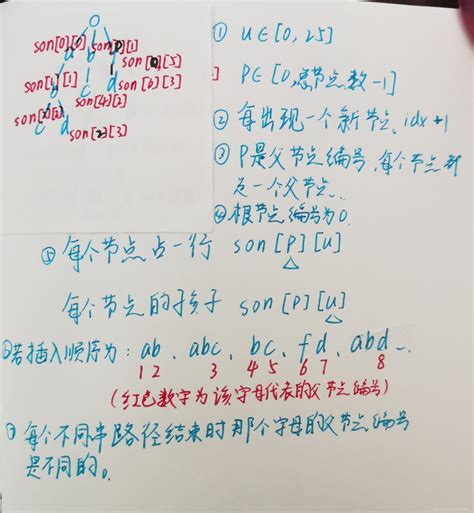 son[0][0]
son[0][1]
a
b
son[0][5]
son[1][1]
b
c
d
son[6][3]
son[4][2]
son[2][2]
c
d
son[2][3]
① u∈[0,25]
P∈[0,总节点数-1]
② 每出现一个新节点,idx+1
③ P是父节点编号,每个节点都
是一个父节点..
④ 根节点编号为0.
⑤ 每个节点占一行 son[P][u]
每个节点的孩子 son[P][u]
⑥若插入顺序为: ab、abc、bc、fd、abd...
1 2 3 4 5 6 7 8
(红色数字为该字母代表的父节点编号)
⑦ 每个不同串路径结束时那个字母的父节点编号
是不同的。